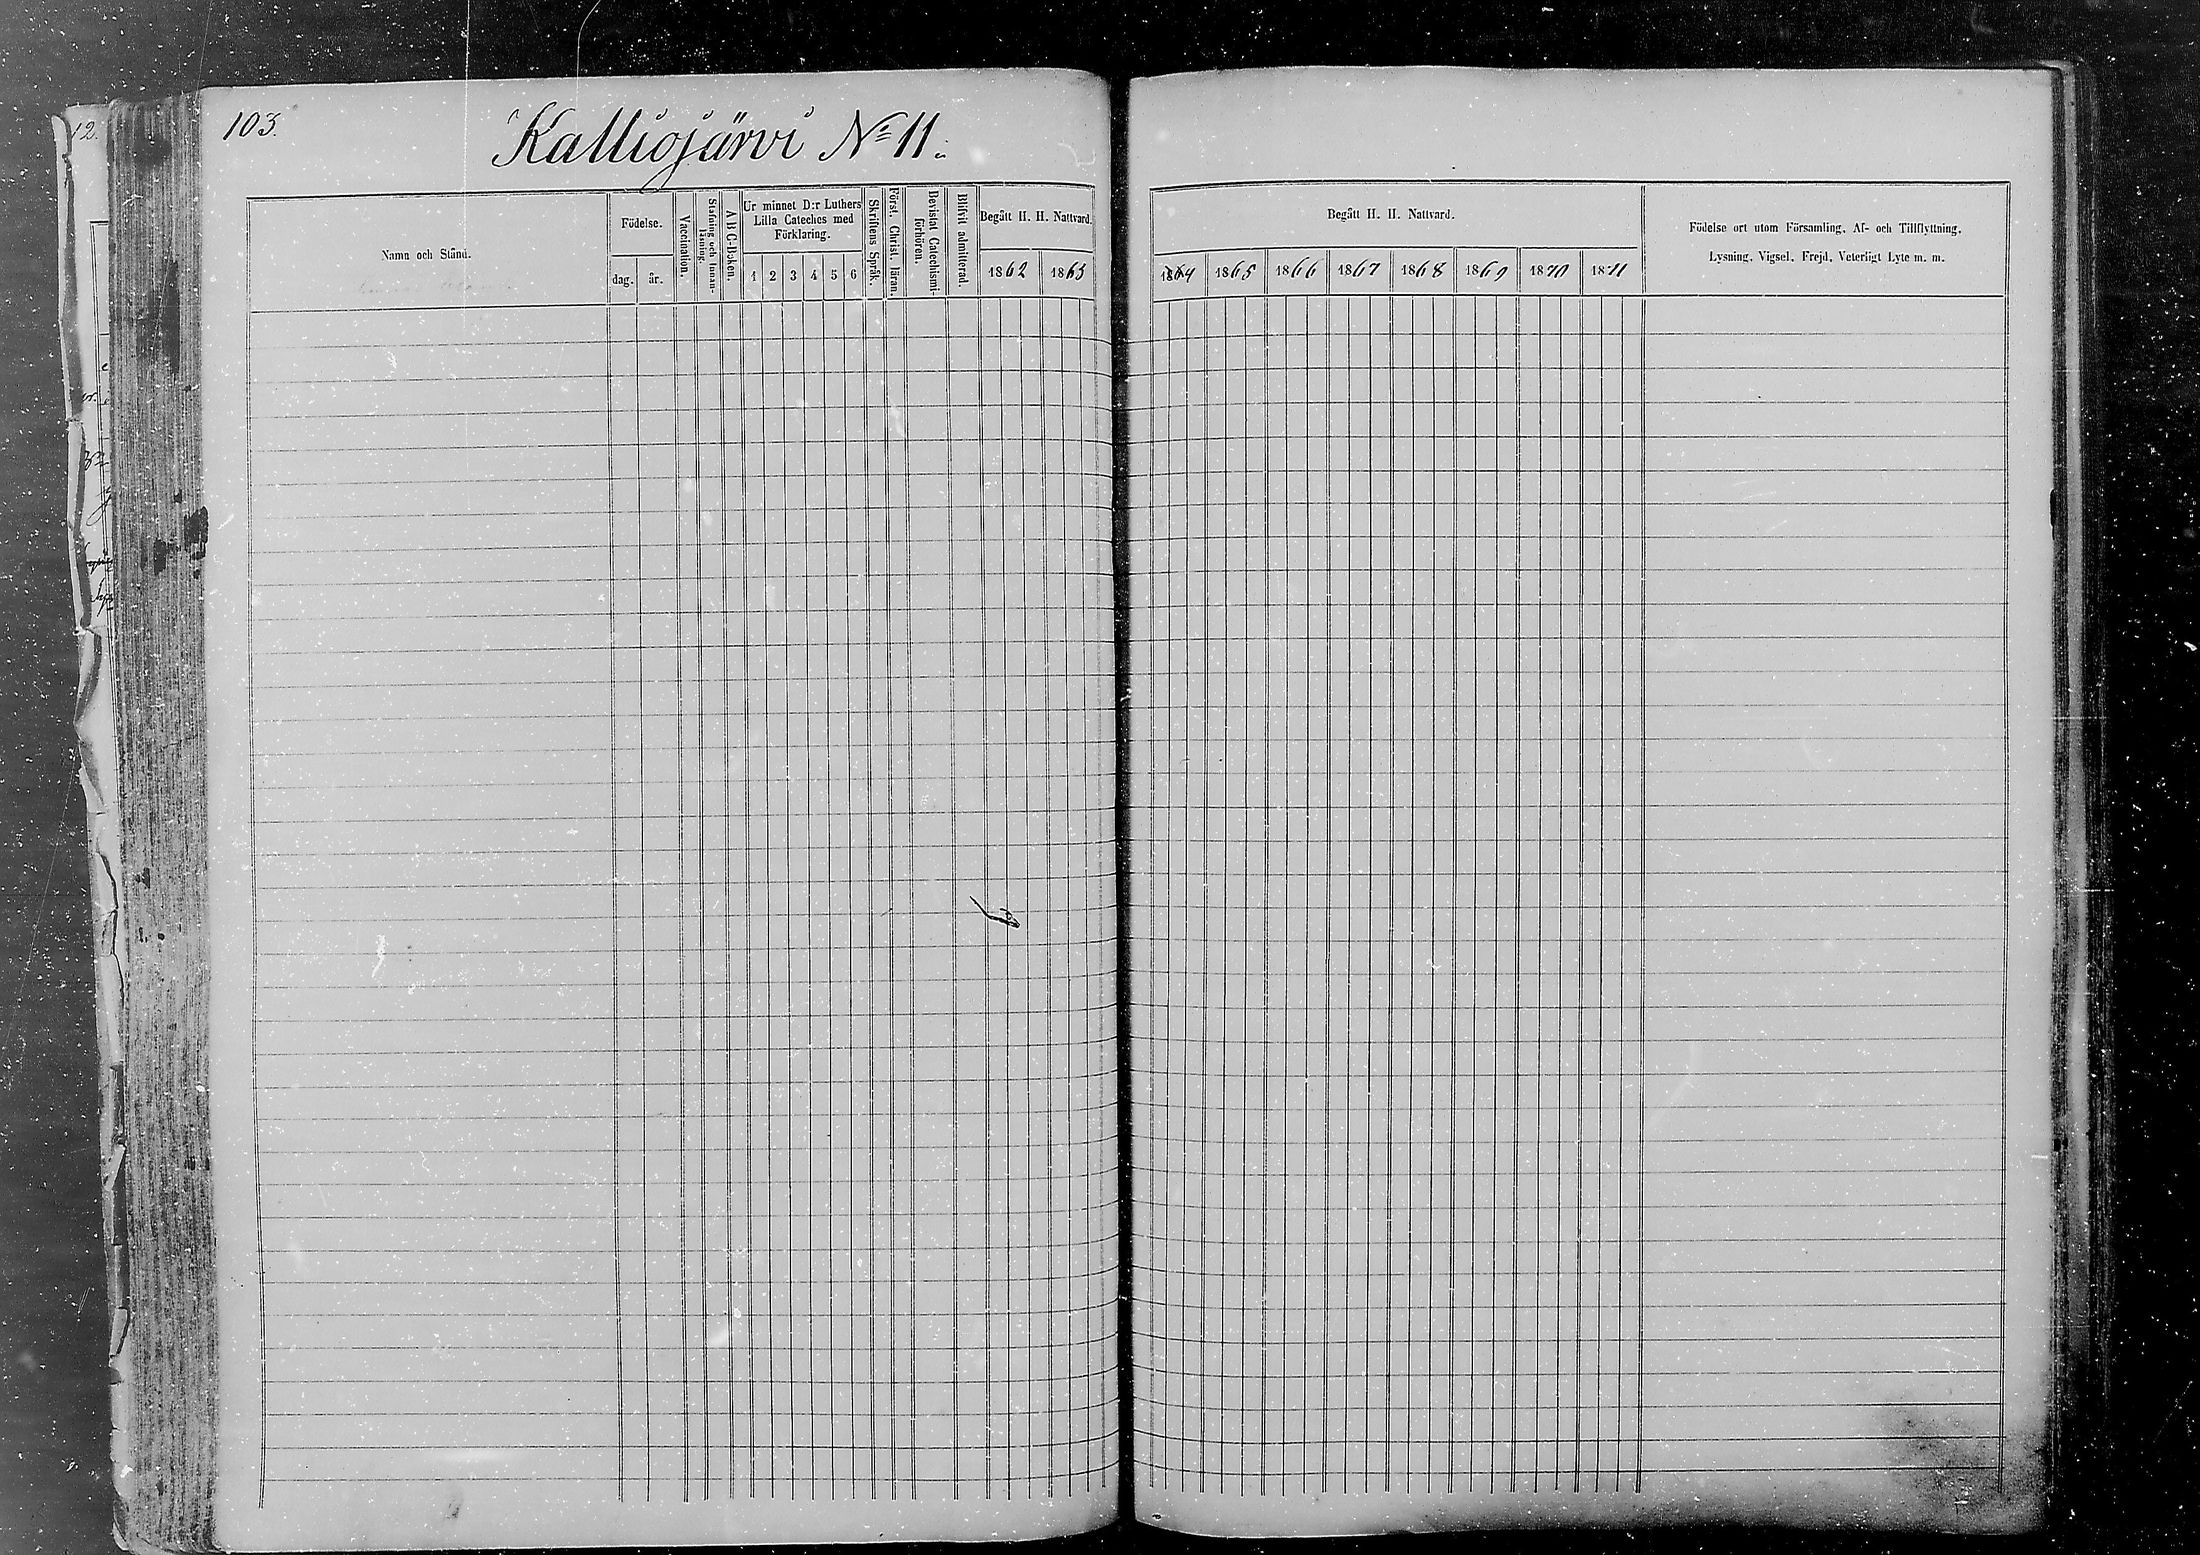 12.
103.
Kalliojärvi No 11.
Namn och Stånd.
Födelse.
dag.
år.
Vaccination.
Stafning och Innan-
läsning.
A B C-Boken.
Ur minnet D:r Luthers
Lilla Cateches med
Förklaring.
1 2 3 4 5 6
Skriftens Språk.
Först. Christ. läran.
Bevistat Catechismi-
förhören.
Blifvit admitterad.
Begått H. H. Nattvard.
1862 1863
Begått H. H. Nattvard.
1864 1865 1866 1867 1868 1869 1870 1871
Födelse ort utom Församling, Af- och Tillflyttning,
Lysning, Vigsel, Frejd, Veterligt Lyte m. m.